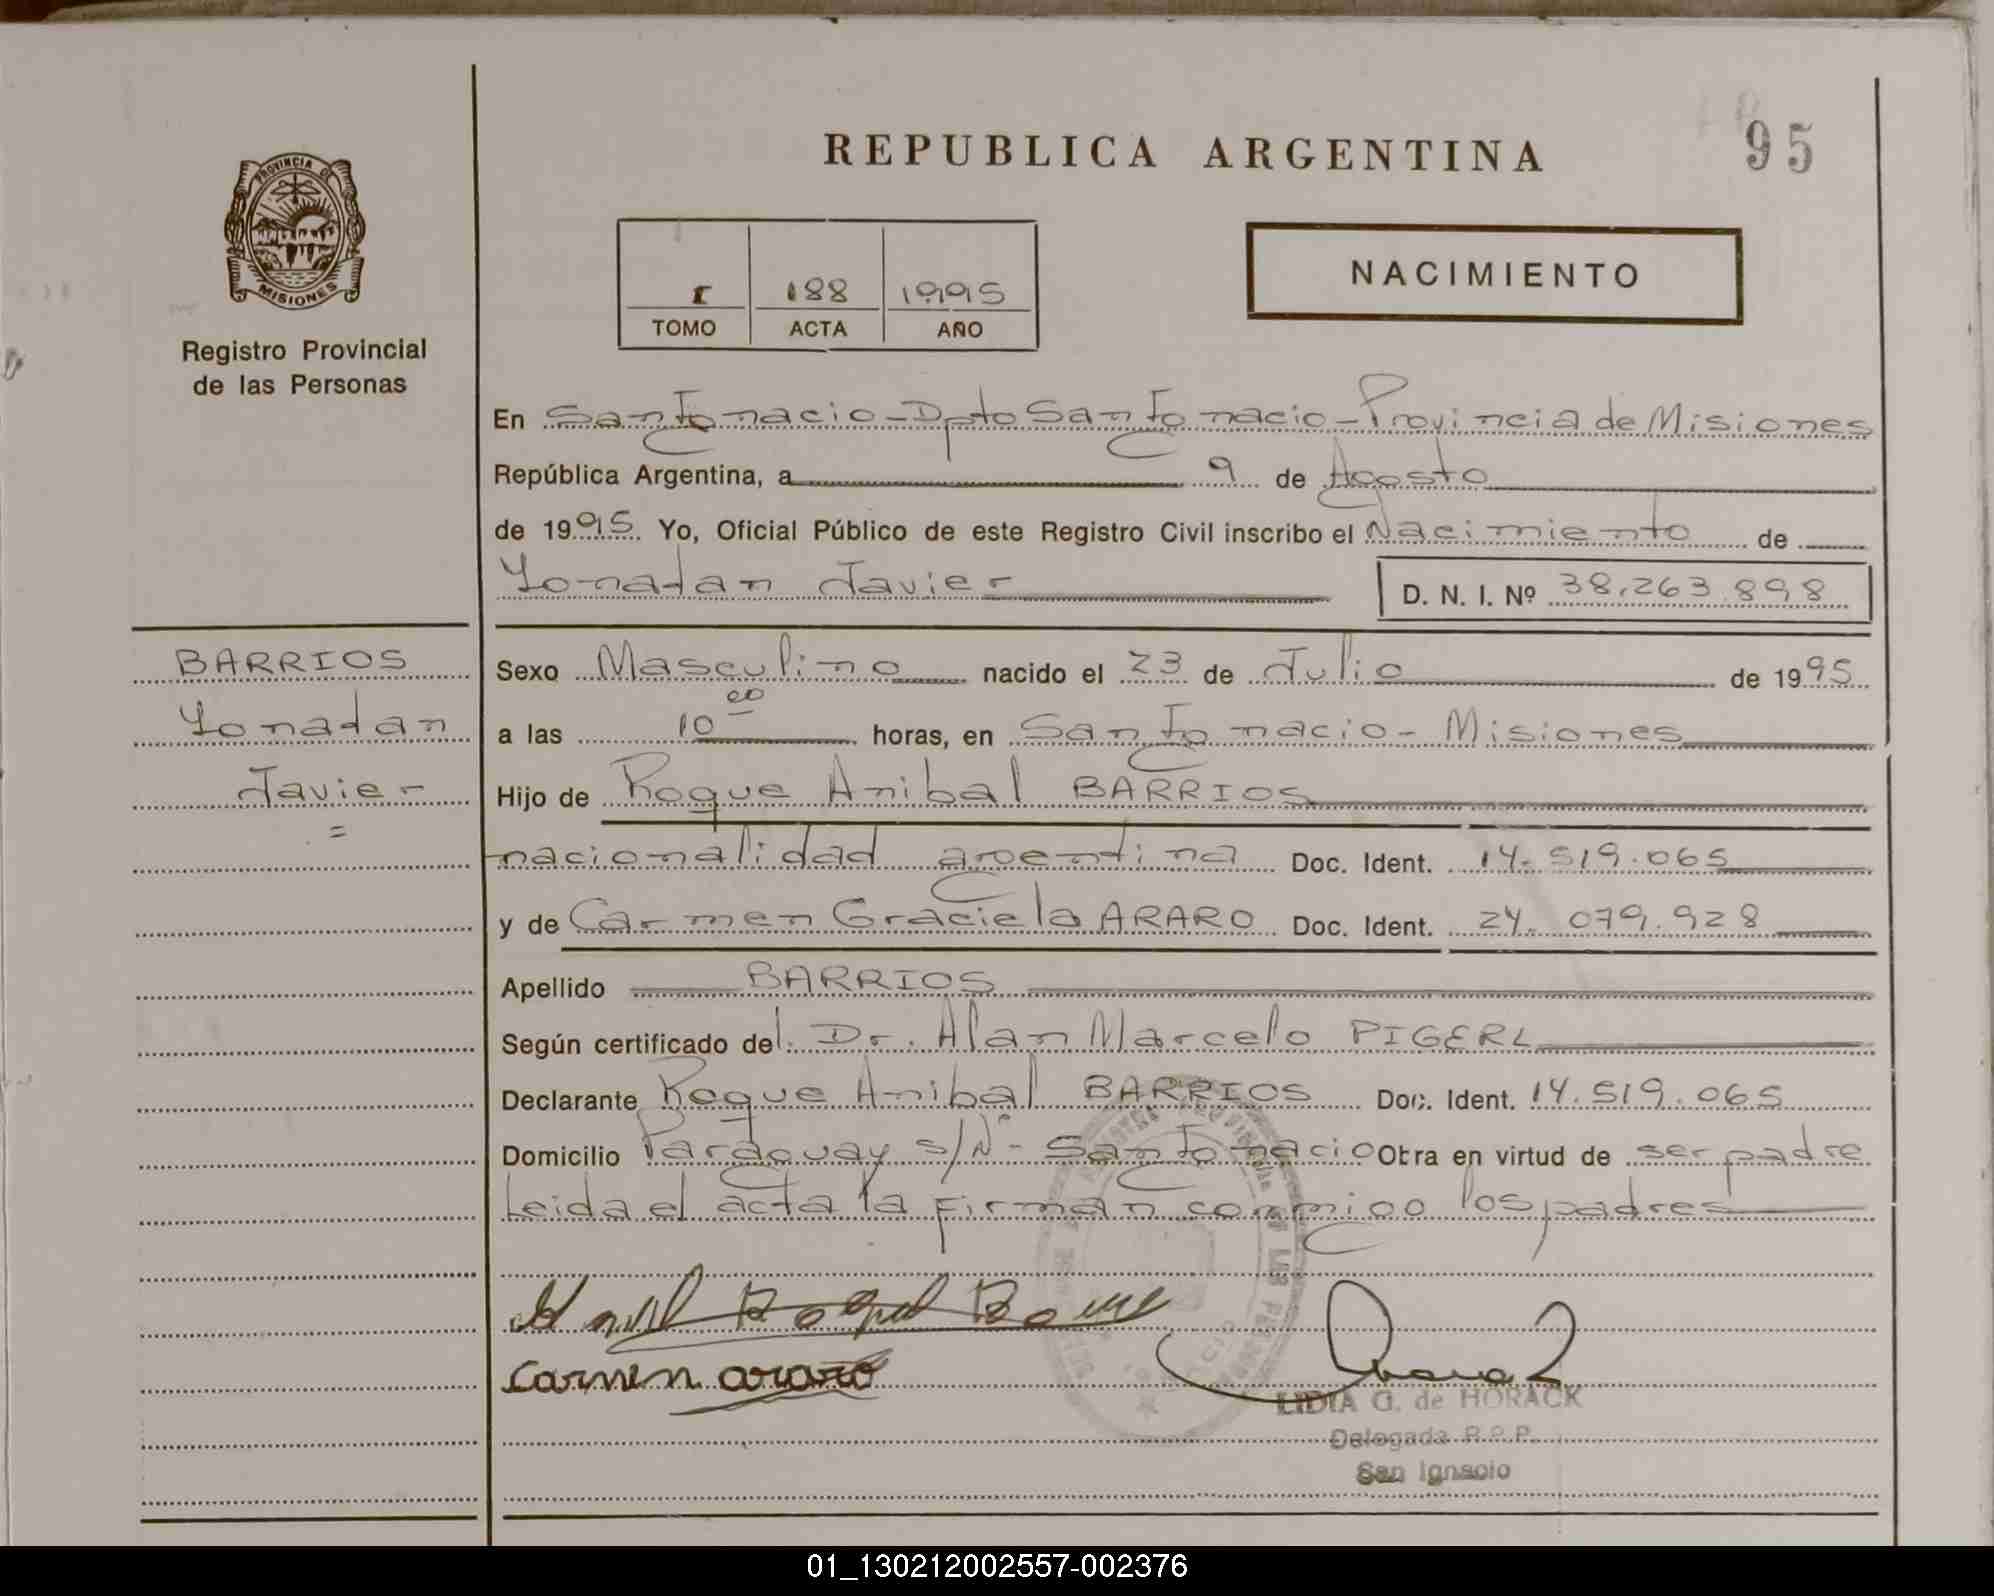 REPUBLICA ARGENTINA
95
PROVINCIA DE
MISIONES
Registro Provincial
de las Personas
I 188 1995
TOMO ACTA AÑO
NACIMIENTO
En San Ignacio - Dpto San Ignacio - Provincia de Misiones
República Argentina, a 9 de Agosto
de 1995 Yo, Oficial Público de este Registro Civil inscribo el Nacimiento de
Yonatan Javier D. N. I. Nº 38.263.898
BARRIOS
Yonatan
Javier
=
Sexo Masculino nacido el 23 de Julio de 1995
a las 10 00 horas, en San Ignacio - Misiones
Hijo de Roque Anibal BARRIOS
nacionalidad argentina Doc. Ident. 14.519.065
y de Carmen Graciela ARARO Doc. Ident. 24.079.928
Apellido BARRIOS
Según certificado del Dr. Alan Marcelo PIGERL
Declarante Roque Anibal BARRIOS Doc. Ident. 14.519.065
Domicilio Paraguay s/Nº - San Ignacio Obra en virtud de ser padre
Leida el acta la firman conmigo los padres
Carmen araro
LIDIA G. de HORACK
Delegada R.P.P.
San Ignacio
01_130212002557-002376